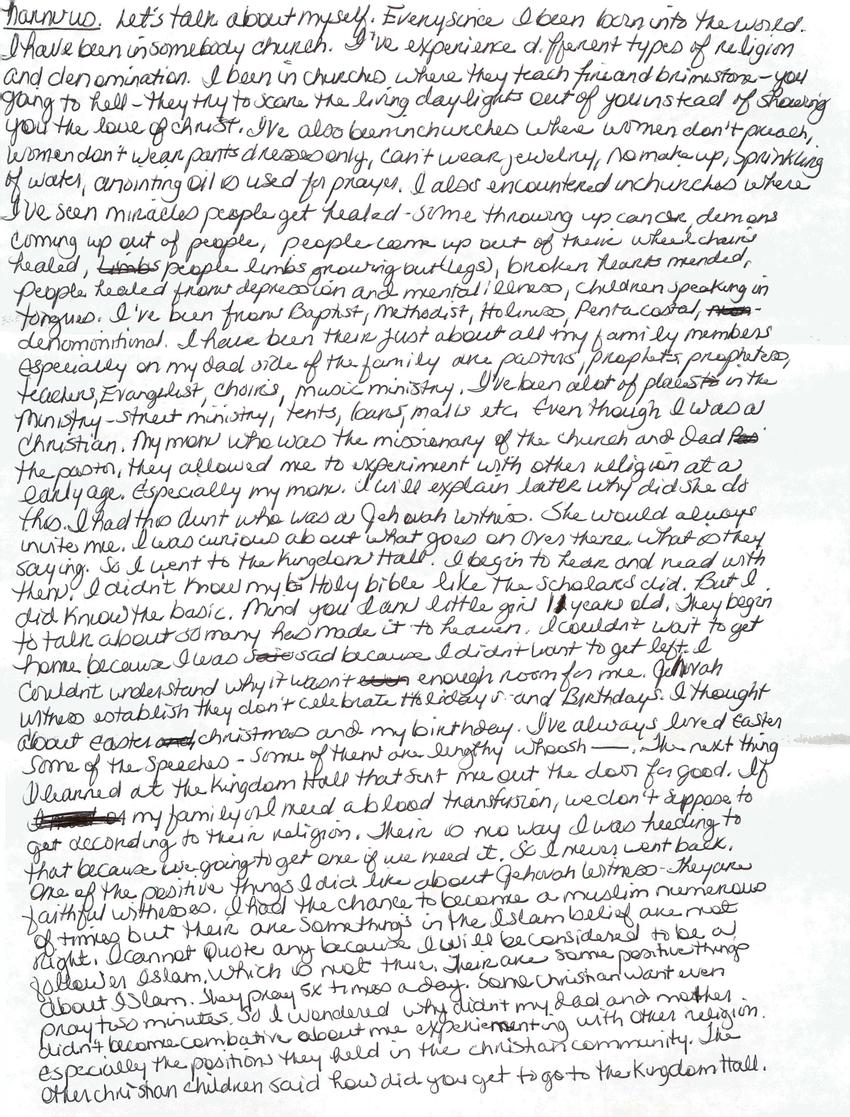 narrow us. Let's talk about myself. Every since I been born into the world.
I have been in somebody church. I've experience different types of religion
and denomination. I been in churches where they teach fire and brimstone - you
going to hell - they try to scare the living daylights out of you instead of showing
you the love of christ. I've also been in churches where women don't preach,
women don't wear pants dresses only, can't wear jewelry, no make up, sprinkling
of water, anointing oil is used for prayer. I also encountered in churches where
I've seen miracles people get healed - some throwing up cancer, demons
coming up out of people, people come up out of their wheelchairs
healed, Limbs people limbs growing out (legs), broken hearts mended,
people healed from depression and mental illness, children speaking in
tongues. I've been from Baptist, Methodist, Holiness, Pentacostal, non-
denomonitional. I have been their just about all my family members
especially on my dad side of the family are pastors, prophets, prophetess,
teachers, Evangelist, choirs, music ministry. I've been alot of places in the
Ministry - street ministry, tents, bars, malls etc. Even though I was a
Christian. My mom who was the missionary of the church and Dad Pas
the pastor, they allowed me to experiment with other religion at a
early age. Especially my mom. I will explain later why did she do
this. I had this aunt who was a Jehovah Witness. She would always
invite me. I was curious about what goes on over there. What is they
saying. So I went to the Kingdom Hall. I begin to hear and read with
them. I didn't know my Holy bible like the scholars did. But I
did know the basic. Mind you I am little girl 11 years old. They begin
to talk about so many has made it to heaven. I couldnt wait to get
home because I was sad because I didn't want to get left. I
couldnt understand why it wasn't enough room for me. Jehovah
witness establish they don't celebrate Holiday's and Birthdays. I thought
about easter and christmas and my birthday. I've always loved Easter
Some of the Speeches - Some of them are lengthy whoosh —. The next thing
I learned at the Kingdom Hall that sent me out the door for good. If
my family or I need a blood transfusion, we don't suppose to
get according to their religion. Their is no way I was heeding to
that because we going to get one if we need it. So I never went back.
One of the positive things I did like about Jehovah Witness - They are
faithful witnesses. I had the chance to become a muslim numerous
of times but their are somethings in the Islam belief are not
right. I cannot Quote any because I will be considered to be a
follower Islam. Which is not true. Their are some positive things
about Islam. They pray 5x times a day. Some christian want even
pray two minutes. So I wondered why didnt my dad and mother.
didn't become combative about me experiementing with other religion.
especially the positions they held in the christian community. The
other christian children said how did you get to go to the Kingdom Hall.